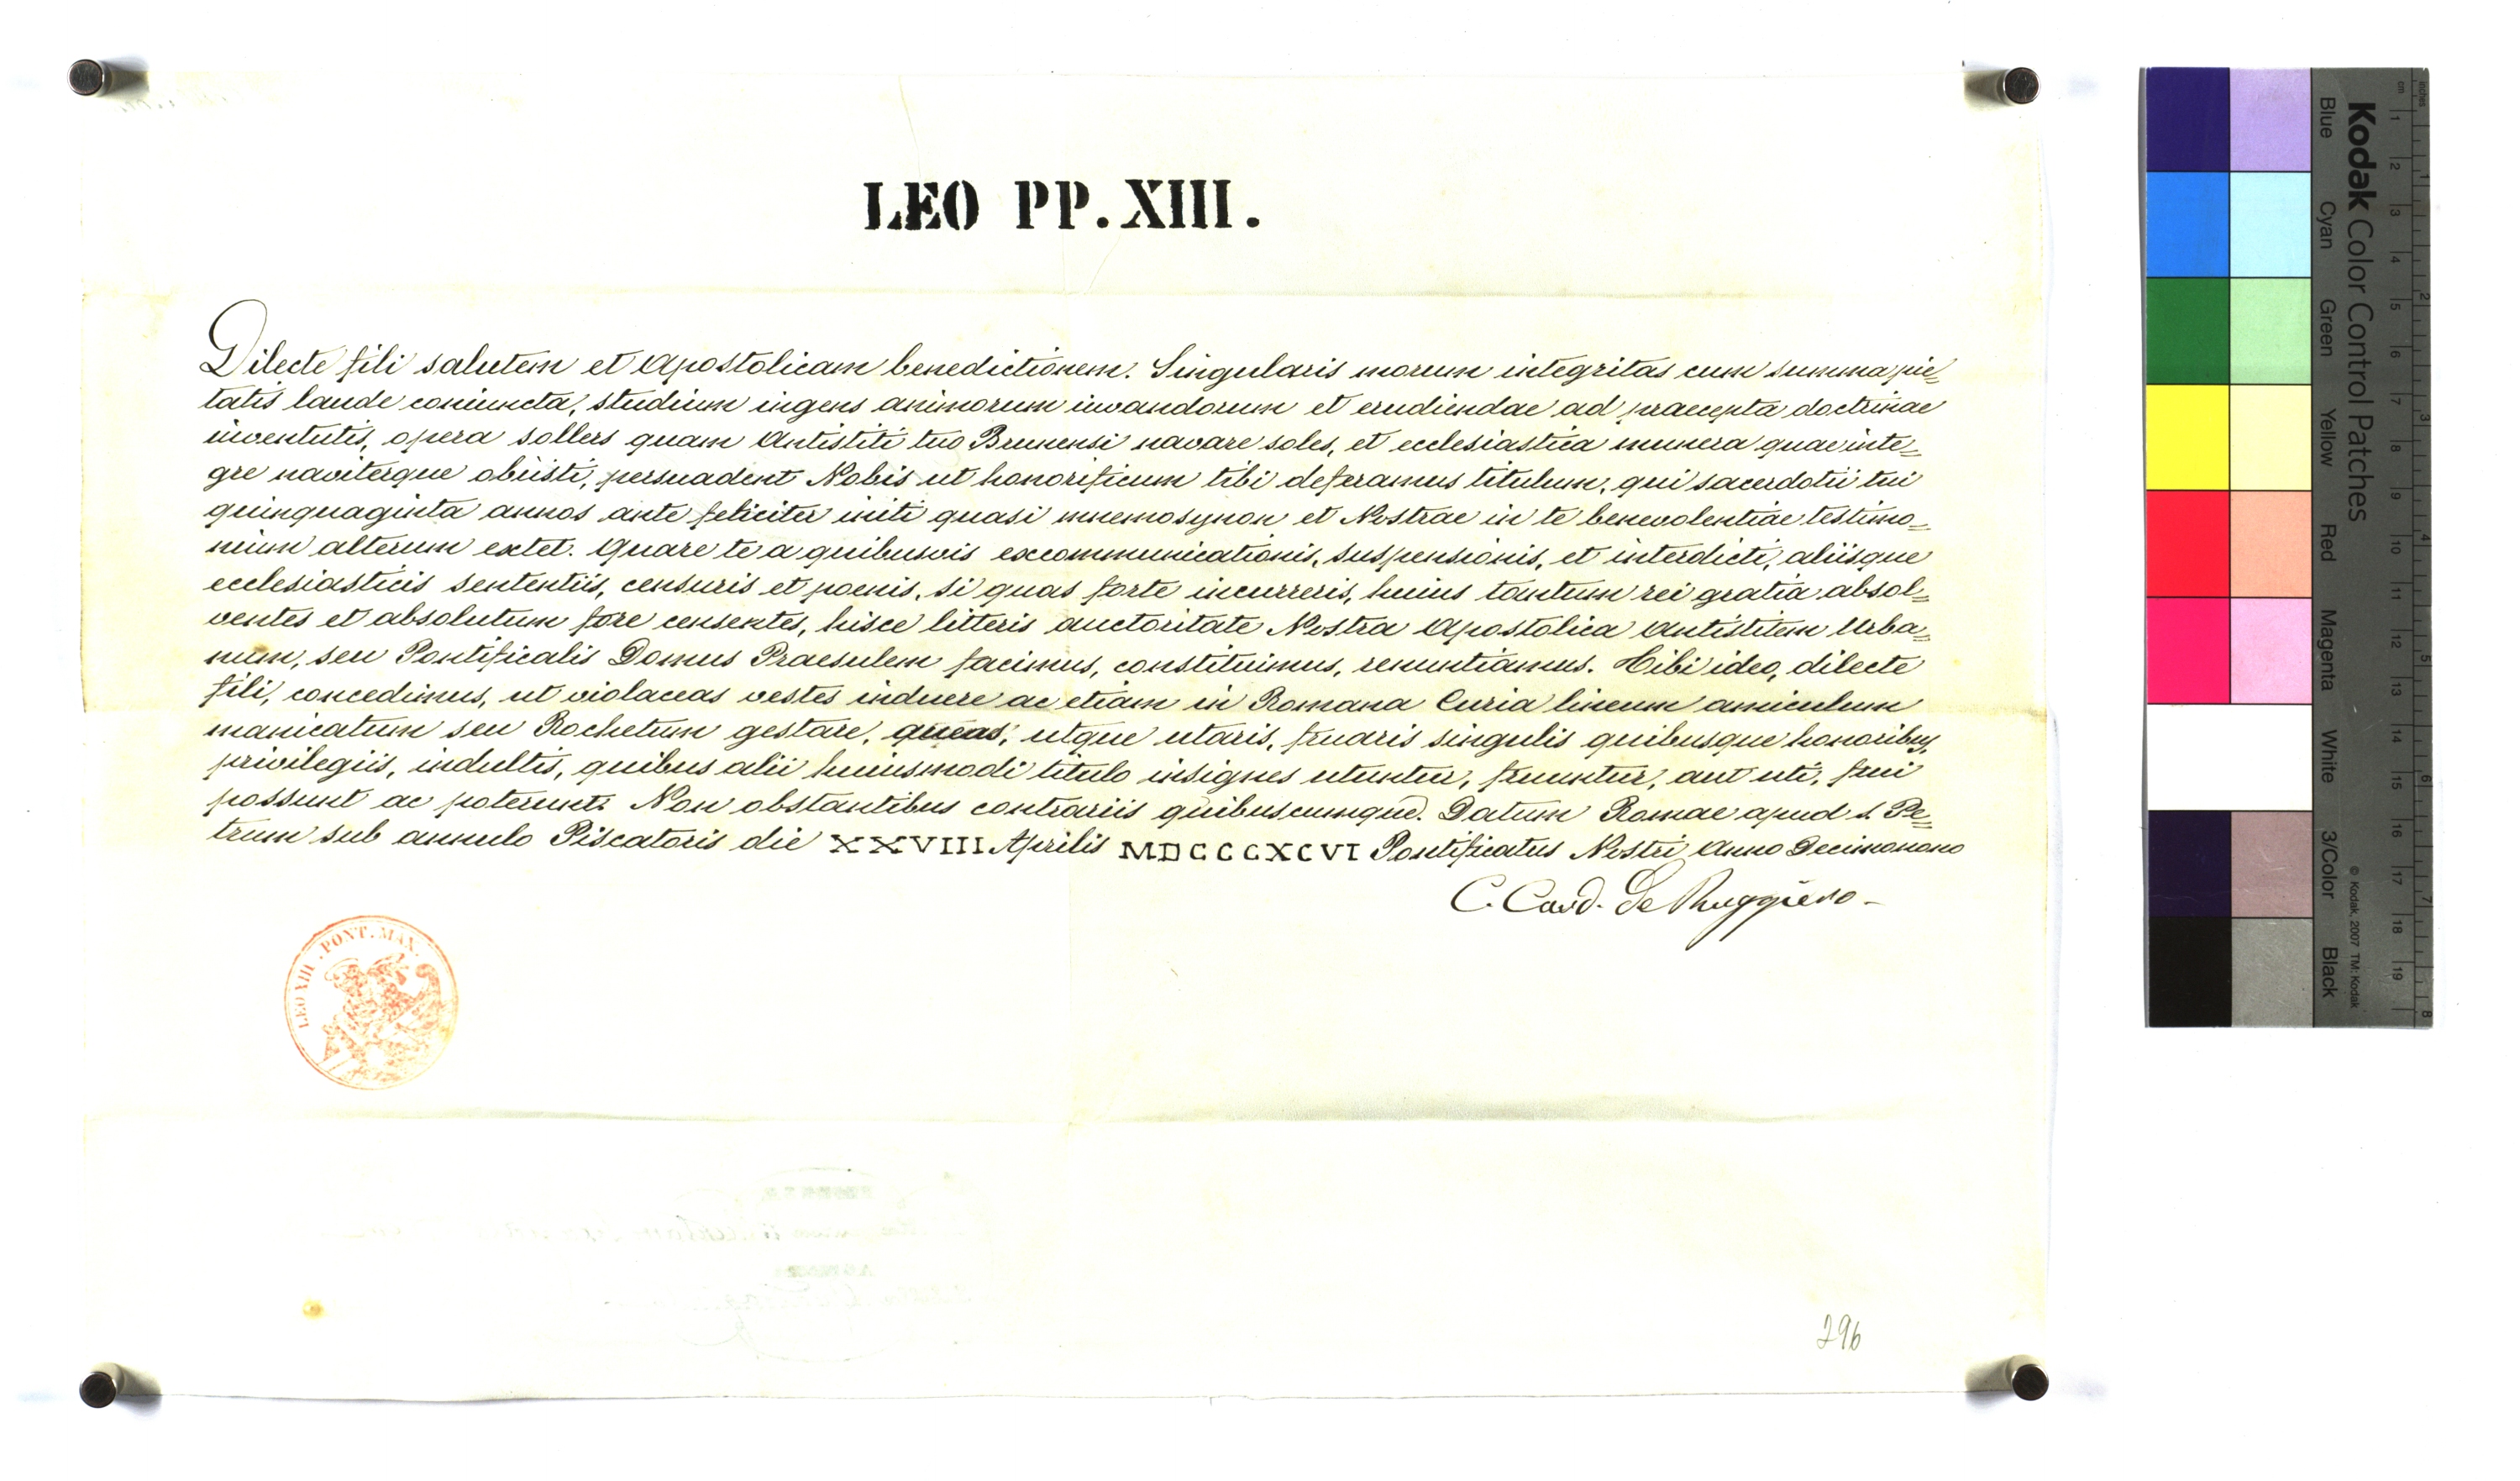 LEO PP. XIII.
Dilecte fili salutem et Apostolicam benedictionem. Singularis morum integritas cum summa pie=
tatis laude coniuncta, studium ingens animorum iuvandorum et erudiendae ad praecepta doctrinae
iuventutis, opera sollers quam Antistiti tuo Brunensi navare soles, et ecclesiastica munera quae inte=
gre naviterque obiisti, persuadent Nobis ut honorificum tibi deferamus titulum, qui sacerdotii tui
quinquaginta annos ante feliciter initi quasi mnemosynon et Nostrae in te benevolentiae testimo=
nium alterum extet. Quare te a quibusvis excommunicationis, suspensionis, et interdicti, aliisque
ecclesiasticis sententiis, censuris et poenis, si quas forte incurreris, huius tantum rei gratia absol=
ventes et absolutum fore censentes, hisce litteris auctoritate Nostra Apostolica Antistitem Urba=
num, seu Pontificalis Domus Praesulem facimus, constituimus, renuntiamus. Tibi ideo, dilecte
fili, concedimus, ut violaceas vestes induere ac etiam in Romana Curia lineum amiculum
manicatum seu Rochetum gestare, queas; utque utaris, fruaris singulis quibusque honoribus,
privilegiis, indultis, quibus alii huiusmodi titulo insignes utuntur, fruuntur, aut uti, frui
possunt ac poterunt. Non obstantibus contrariis quibuscumque. Datum Romae apud S. Pe=
trum sub annulo Piscatoris die XXVIII Aprilis MDCCCXCVI Pontificatus Nostri Anno Decimonono
C. Card. De Ruggiero -
LEO XIII . PONT. MAX.
296
Kodak Color Control Patches
Blue Cyan Green Yellow Red Magenta White 3/Color Black
© Kodak, 2007 TM: Kodak
inches 1 2 3 4 5 6 7 8
cm 1 2 3 4 5 6 7 8 9 10 11 12 13 14 15 16 17 18 19